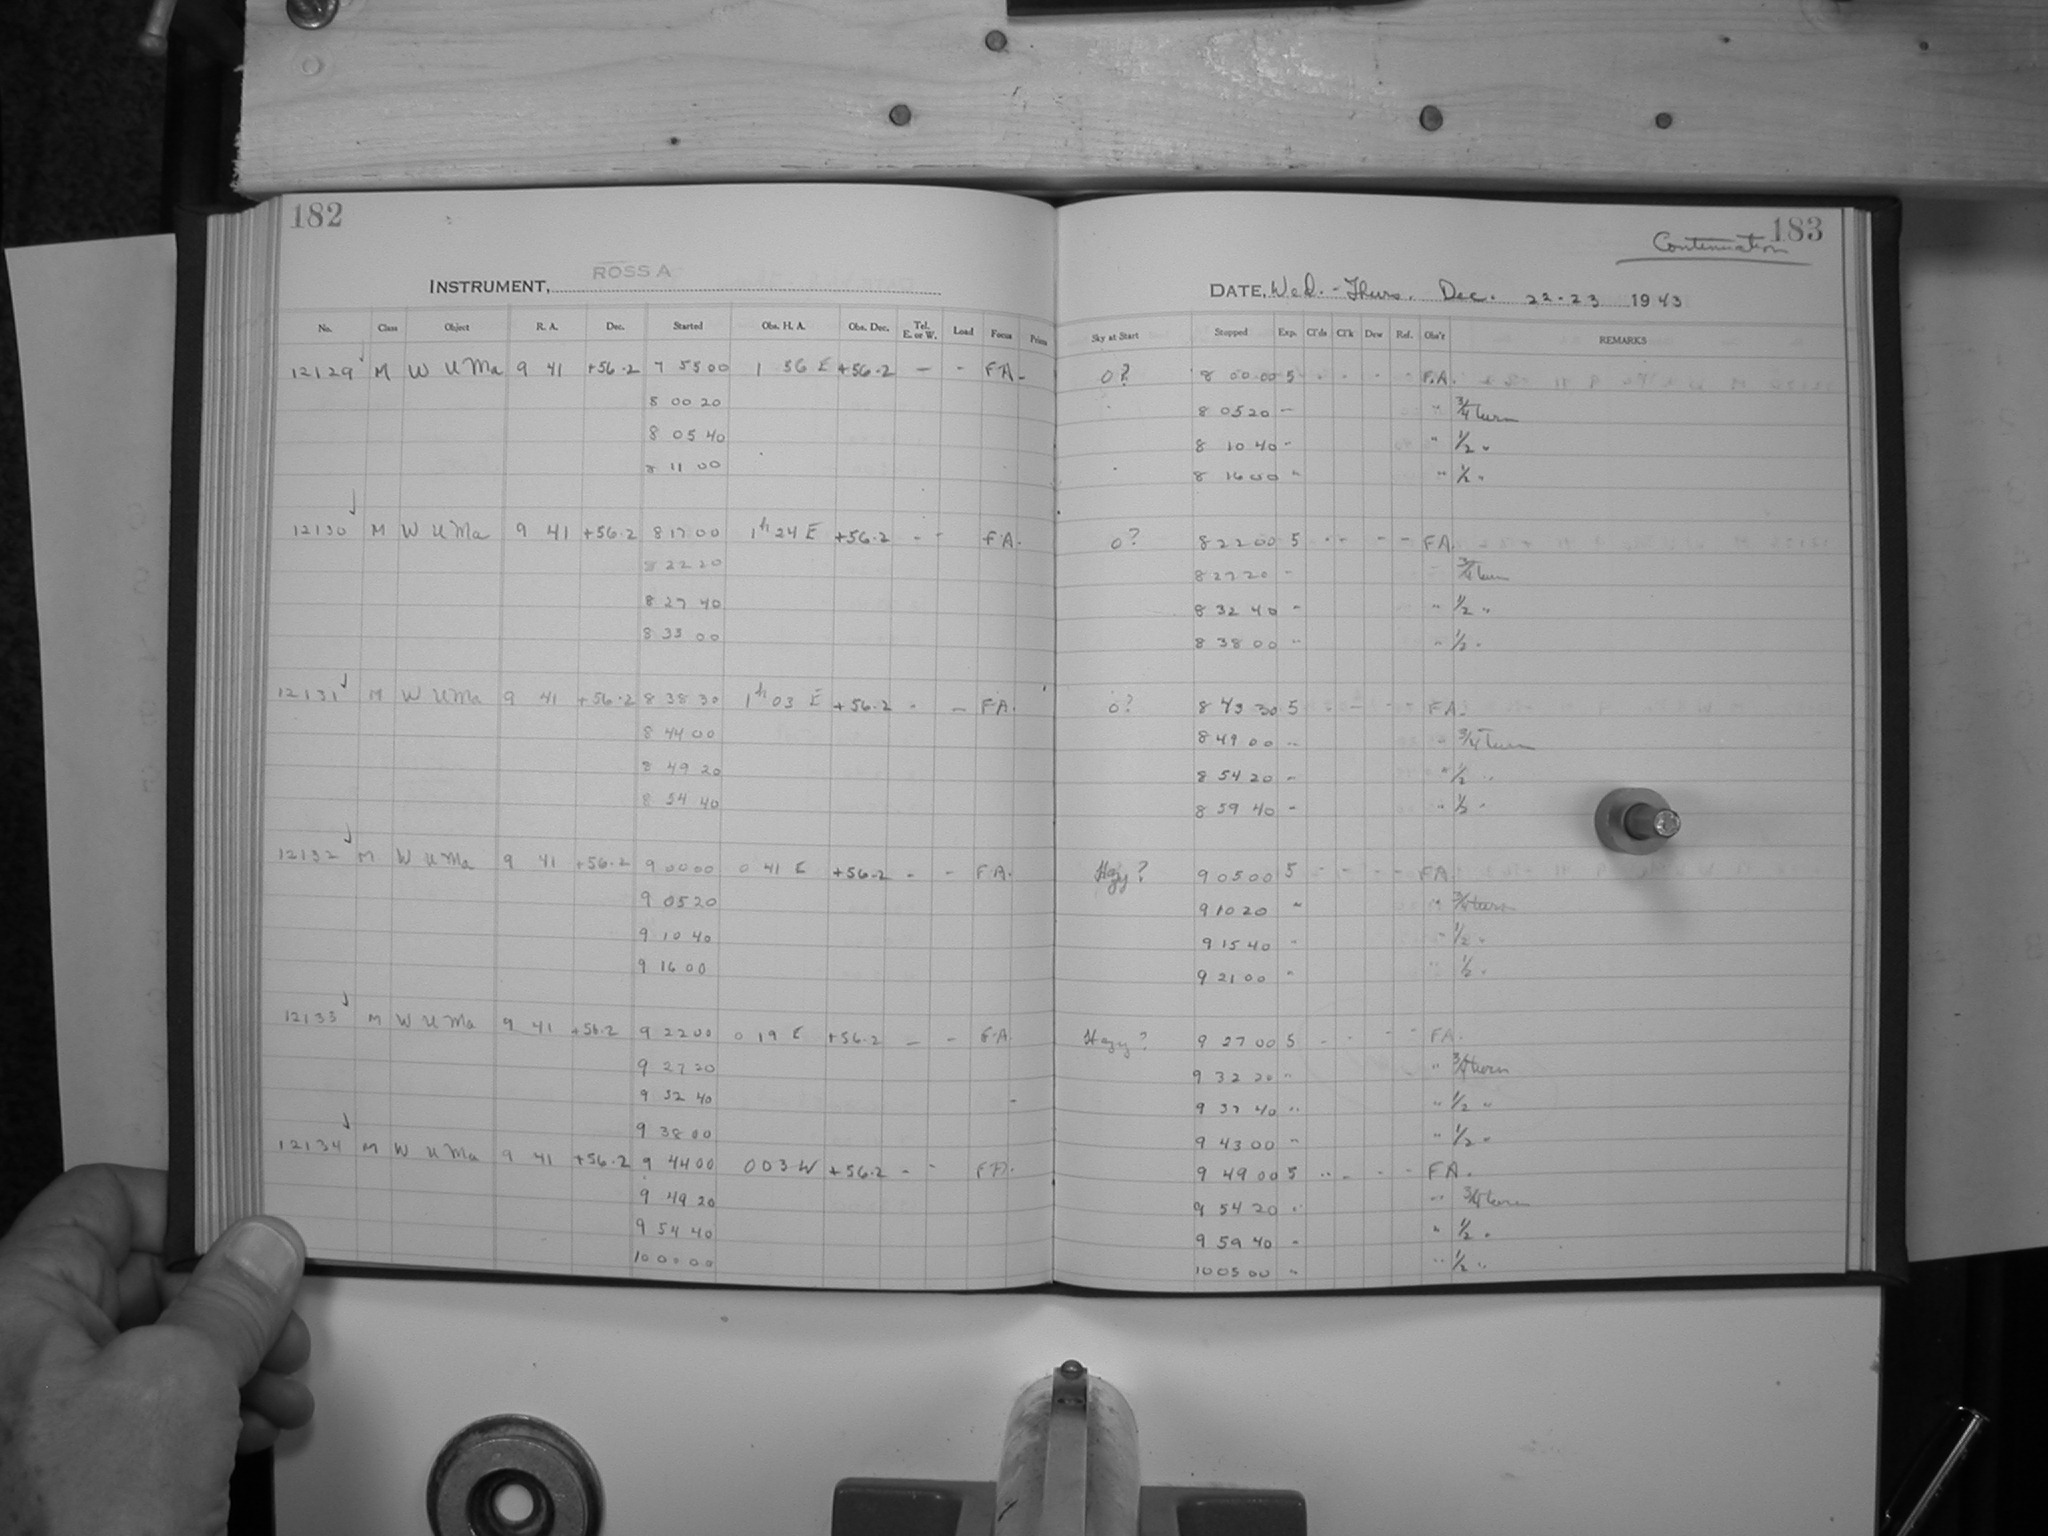 182
INSTRUMENT, ROSS A
No. Class Object R. A. Dec. Started Obs. H. A. Obs. Dec. Tel. E. or W. Load Focus Prism
12129 M W U Ma 9 41 +56.2 7 55 00 1 56 E +56.2 — - F.A.
8 00 20
8 05 40
8 11 00
12130 M W U Ma 9 41 +56.2 8 17 00 1h 24 E +56.2 - - F.A.
8 22 20
8 27 40
8 33 00
12131 M W U Ma 9 41 +56.2 8 38 30 1h 03 E +56.2 - - F.A.
8 44 00
8 49 20
8 54 40
12132 M W U Ma 9 41 +56.2 9 00 00 0 41 E +56.2 - - F.A.
9 05 20
9 10 40
9 16 00
12133 M W U Ma 9 41 +56.2 9 22 00 0 19 E +56.2 - - F.A.
9 27 20
9 32 40
9 38 00
12134 M W U Ma 9 41 +56.2 9 44 00 0 03 W +56.2 - - F.A.
9 49 20
9 54 40
10 00 00
183
Continuation
DATE, Wed. - Thurs. Dec. 22-23 1943
Sky at Start Stopped Exp. Cl'ds Cl'k Dew Ref. Obs'r REMARKS
0? 8 00 00 5 - - - - F.A.
8 05 20 - " 3/4 turn
8 10 40 - " 1/2 "
8 16 00 " " 1/2 "
0? 8 22 00 5 - - - - F.A.
8 27 20 - " 3/4 turn
8 32 40 - " 1/2 "
8 38 00 " " 1/2 "
0? 8 43 30 5 - - - - F.A.
8 49 00 " " 3/4 turn
8 54 20 - " 1/2 "
8 59 40 - " 1/2 "
Hazy? 9 05 00 5 - - - - F.A.
9 10 20 " " 3/4 turn
9 15 40 " " 1/2 "
9 21 00 " " 1/2 "
Hazy? 9 27 00 5 - - - - F.A.
9 32 20 " " 3/4 turn
9 37 40 " " 1/2 "
9 43 00 " " 1/2 "
9 49 00 5 - - - - F.A.
9 54 20 " " 3/4 turn
9 59 40 " " 1/2 "
10 05 00 " " 1/2 "